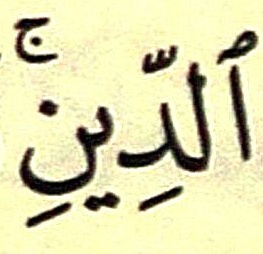 ٱلدِّينِۚ